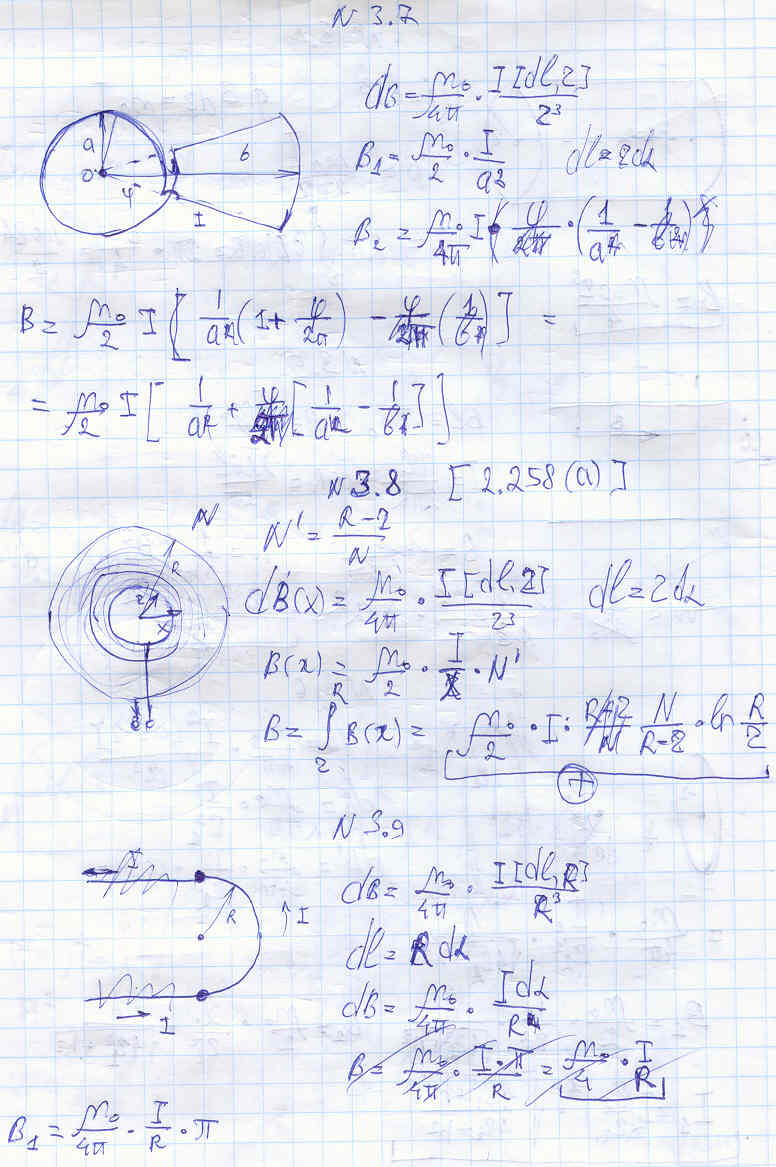 N 3.7
dB = μ₀/4π · I[dl,r]/r³
a
b
O
φ
I
B₁ = μ₀/2 · I/a dl = rdα
B₂ = μ₀/4π I φ · (1/a - 1/b)
B = μ₀/2 I [1/a (1 + φ/2π) - φ/2π (1/b)] =
= μ₀/2 I [1/a + φ/2π [1/a - 1/b]]
N 3.8 [2.258(a)]
N
R
r
x
N' = R-r/N
dB(x) = μ₀/4π · I[dl,r]/r³ dl = rdα
B(x) = μ₀/2 · I/x · N'
B = ∫ᵣᴿ B(x) = μ₀/2 · I · N/R-r · ln R/r
+
N 3.9
I
R
I
I
dB = μ₀/4π · I[dl,R]/R³
dl = Rdα
dB = μ₀/4π · Idα/R
B = μ₀/4π · I·π/R = μ₀/4 · I/R
B₁ = μ₀/4π · I/R · π